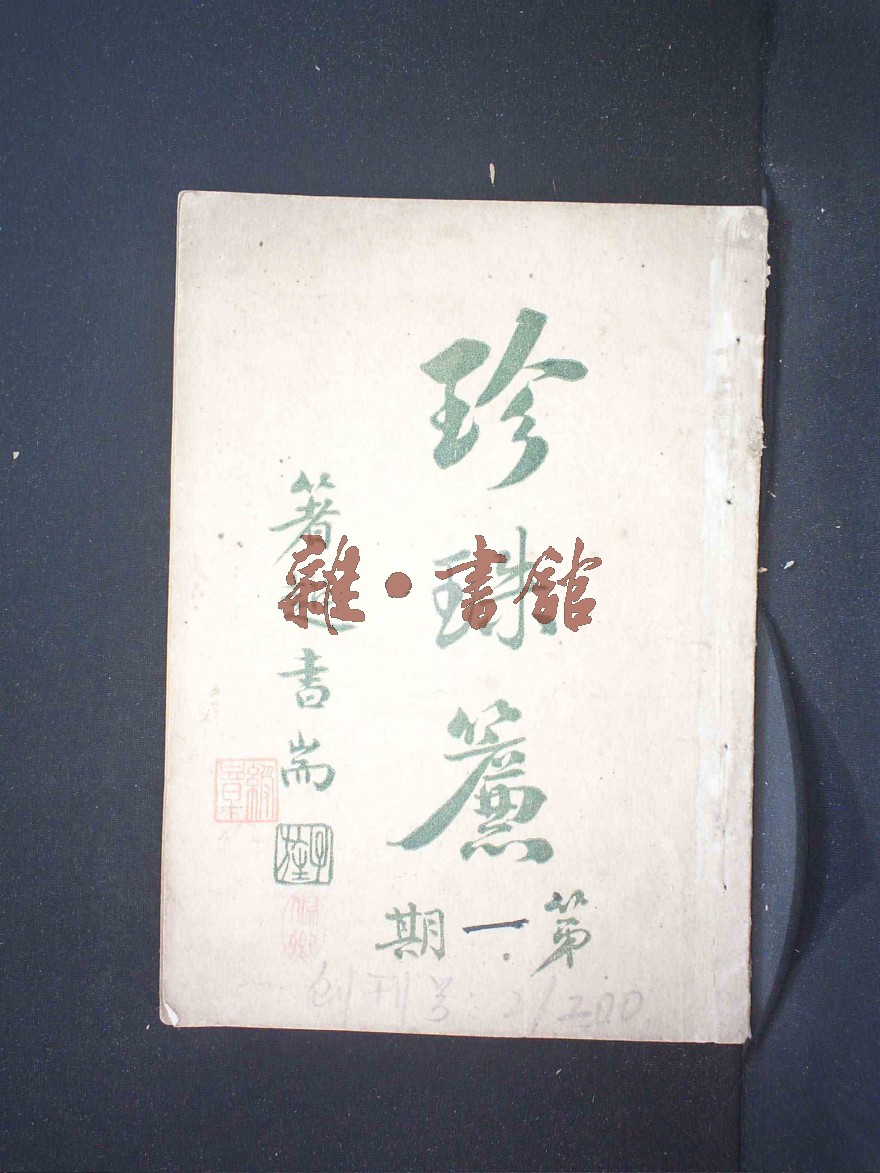 珍珠簾
第一期
著超書耑
雜·書館
创刊号 2/200